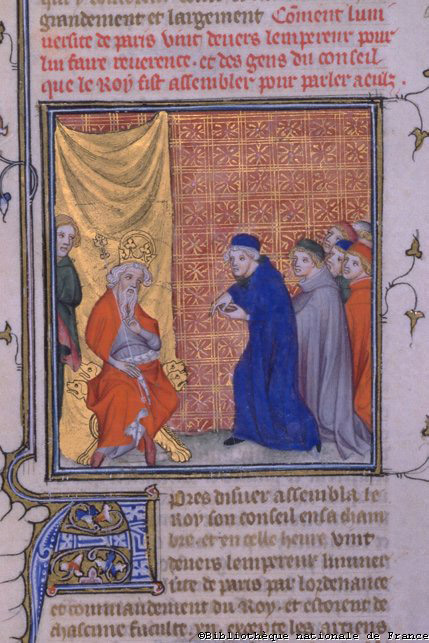 grandement et largement Coment luni
versite de paris vint devers lempereur pour
lui faire reverence . et des gens du conseil
que le Roy fist assembler pour parler a eulz .
Apres disner assembla le
Roy son conseil en sa cham
bre . et en celle heure vint
devers lempereur luniver
site de paris par lordenance
et commandement du Roy . et estoient de
chascune faculte
©Bibliothèque nationale de France